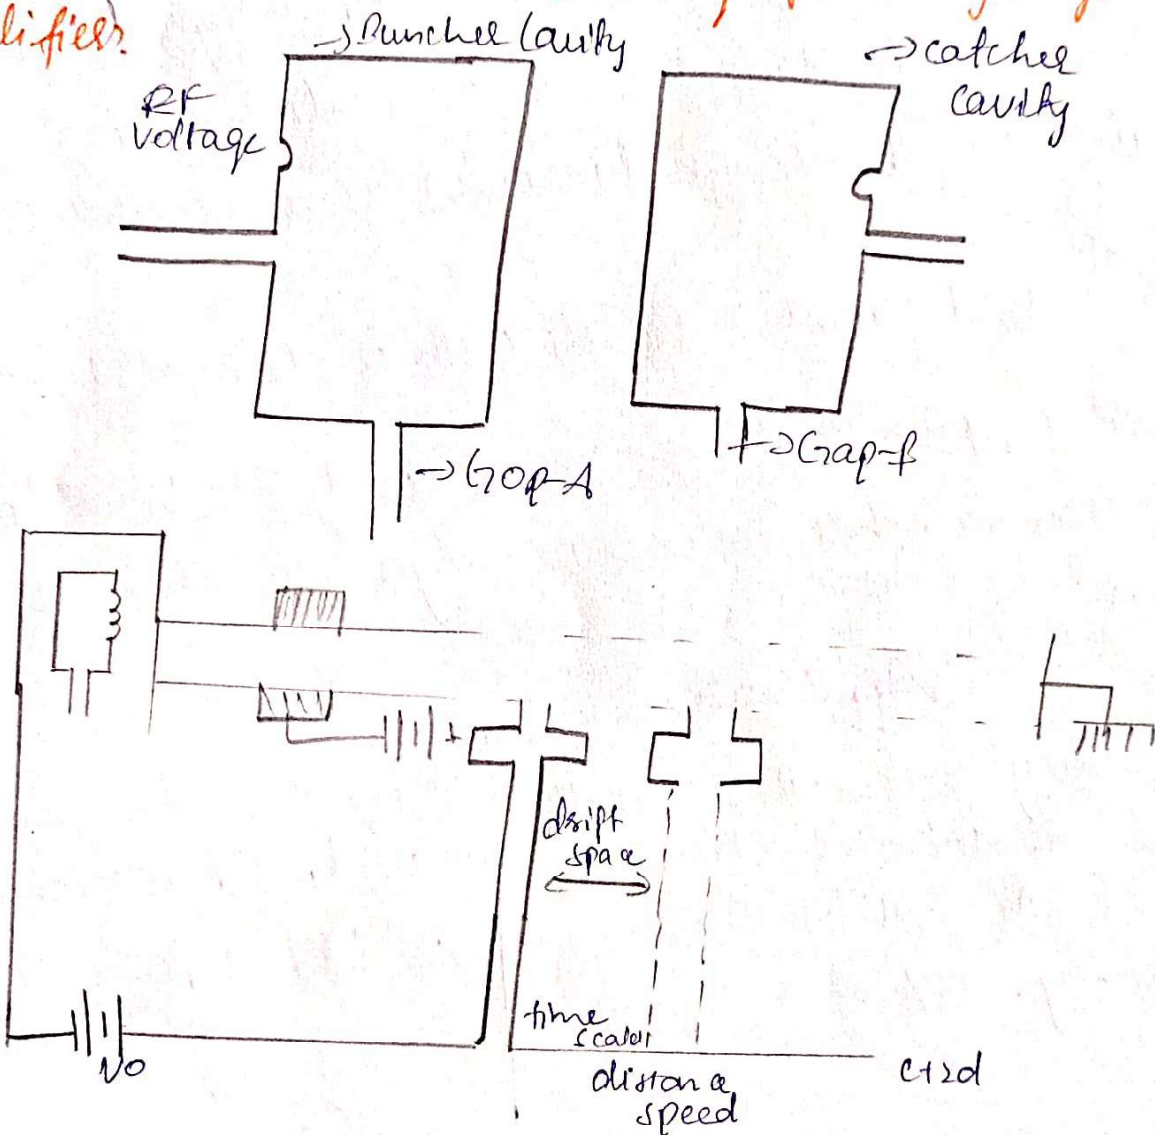 lifiers.
→ Buncher Cavity
→ catcher
cavity
RF
Voltage
→ Gap-A
→ Gap-B
+
drift
space
time
scale
V0
distance
speed